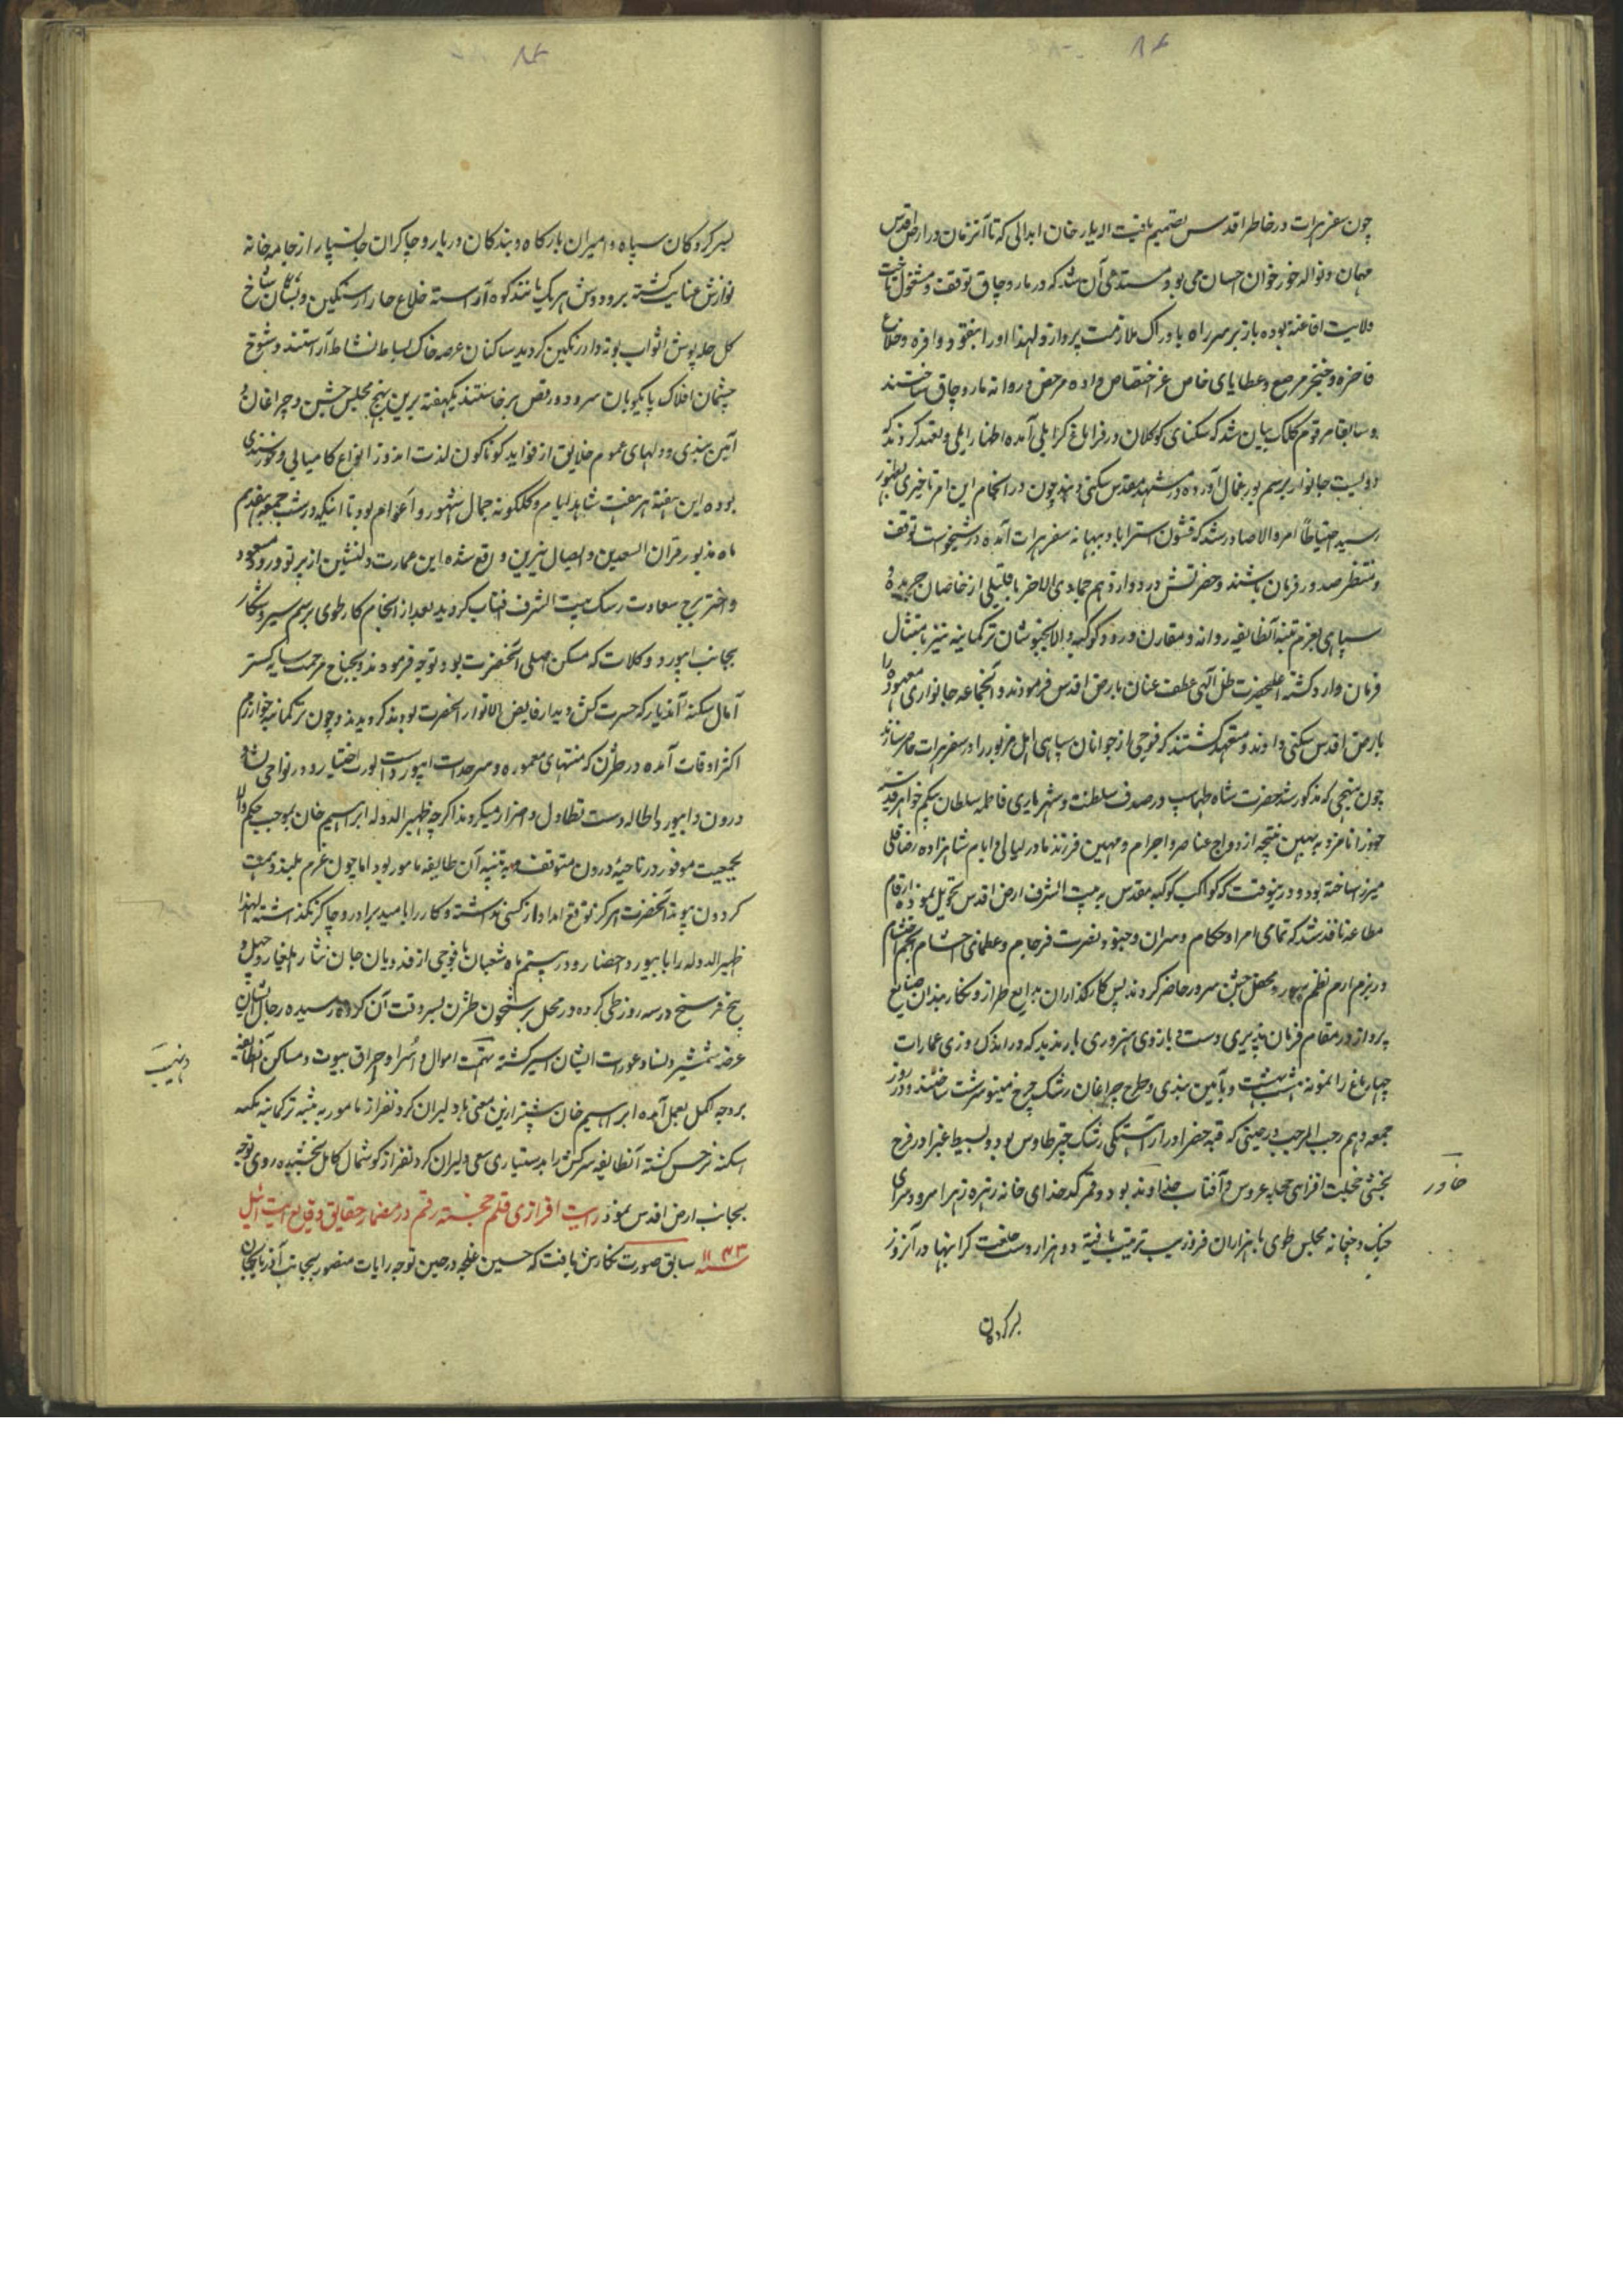 چون سفر هرات در خاطر اقدس تصمیم یافت الهیار خان ابدالی که تا آنزمان در ارض اقدس
مهمان و نواله خور خوان احسان می بود مستدعی آن شد که در ماروچاق توقف و مشغول تاخت
ولایت افاغنه بوده باز بر سر راه بادراک ملازمت پردازد لهذا او را بنقود وافره و خلاع
فاخره و خنجر مرصع و عطایای خاص عز اختصاص داده مرخص و روانه ماروچاق ساختند
و سابقا مرقوم کلک بیان شد که سکنای کوکلان در قراباغ کرایلی آمده اظهار ایلی و تعهد کردند که
دویست خانوار برسم یورغمال آورده در مشهد مقدس سکنی دهند چون در انجام این امر تاخیری بظهور
رسید احتیاطاً امر والا صادر شد که قشون استراباد ببهانه سفر هرات آمده در شیخوست توقف
و منتظر صدور فرمان باشند و حضرتش در دوازدهم جمادی الاخر با قلیلی از خاصان جریده و
سپاهی بعزم تنبیه آنطایفه روانه و مقارن ورود کوکبه والا بخبوشان ترکمانیه نیز بامتثال
فرمان وارد کشته اعلیحضرت ظل آلهی عطف عنان بارض اقدس فرمودند و آنجماعه خانواری معهود را
بارض اقدس سکنی دادند و متعهد کشتند که فوجی از جوانان سپاهی ایل مزبور را در سفر هرات حاضر سازند
چون بنهجی که مذکور شد حضرت شاه طهماسب در صدف سلطنت و شهریاری فاطمه سلطان بیکم خواهر قدسیه
خود را نامزد بهین نتیجه ازدواج عناصر و اجرام و مهین فرزند مادر لیالی و ایام شاهزاده رضا قلی
میرزا ساخته بود و درینوقت که کواکب کوکبه مقدس به بیت الشرف ارض اقدس تحویل نمود ارقام
مطاعه نافذ شد که تمامی امرا و حکام و سران و جنود نصرت فرجام و عظمای احشام انجم احتشام
در بزم ارم نظم سور و محفل جشن سرور حاضر کردند پس کارکذاران بدایع طراز و نکاربندان صنایع
پرداز در مقام فرمان پذیری دست و بازوی هنروری یازیدند که در اندک روزی عمارات
چهار باغ را نمونه هشت بهشت و بآیین بندی و طرح چراغان رشک چرخ مینو سرشت ساختند و در روز
جمعه دهم رجب المرجب در حینی که قبه خضرا در آراستکی رشک چتر طاوس بود و بسیط غبرا در فرح
بخشی خجلت افزای حجله عروس آفتاب خاور
خداوند بود و قمر کدخدای خانه زهره زهرا سرود سرای
چنک و چغانه مجلس طوی با هزاران فر و زیب ترتیب یافته دو هزار دست خلعت کرانبها در آنروز
بسرکردکان
بسرکردکان سپاه و امیران بارکاه و بندکان دربار و چاکران جانسپار از جامه خانه
نوازش عنایت کشته برو دوش هر یک مانند کوه آراسته خلاع خارا رنکین و بستان شاخ
کل حله پوش اثواب بوته دار رنکین کردید ساکنان عرصه خاک بساط نشاط آراستند و شوخ
چشمان افلاک پایکوبان سرود و رقص برخاستند یکهفته برین نهج مجلس جشن و چراغان و
آیین بندی و دلهای عموم خلایق از فواید کوناکون لذت اندوز انواع کامیابی و خورسندی
بوده این هفته هر هفت شاهد ایام و کلکونه جمال شهور و اعوام بود تا اینکه در شب جمعه هفدهم
ماه مذبور قران السعدین و اتصال نیرین واقع شده این عمارت دلنشین از پرتو ورود مسعود
و اختر برج سعادت رشک بیت الشرف آفتاب کردید بعد از انجام کار طوی برسم سیر و شکار
بجانب ابیورد و کلات که مسکن اصلی آنحضرت بود توجه فرمودند و بجناح مرحمت سایه کستر
آمال سکنه آندیار که حسرت کش دیدار فایض الانوار آنحضرت بودند کردیدند و چون ترکمانیه خوارزم
اکثر اوقات آمده در طژن که منتهای معموره و سرحدات ابیورد است یورت اختیار و در نواحی نسا و
درون و ابیورد اطاله دست تطاول و اضرار میکردند اکرچه ظهیر الدوله ابراهیم خان بموجب حکم والا
بجمعیت موفور در ناحیهٔ درون متوقف و به تنبیه آن طایفه مامور بود اما چون عزم بلند و همت
کردون پیوند آنحضرت هرکز توقع امداد از کسی نداشته و کار را بامید برادر و چاکر نکذاشته لهذا
ظهیر الدوله را بابیورد احضار و در بیستم ماه شعبان با فوجی از فدویان جان نثار ایلغار و چهل و
پنج فرسخ در سه روز طی کرده در محل برشخون طژن بسر وقت آن کروه رسیده رجال ایشان
عرضه شمشیر و نسا و عورات ایشان اسیر کشته نهب اموال و اسرا و احراق بیوت و مساکن آنطایفه
بر وجه اکمل بعمل آمده ابراهیم خان پیشتر ازین معنی با دلیران کرد نفراز مامور به تنبیه ترکمانیه یکمه
اسکنه سرخس کشته آنطایفه سرکش را بدستیاری سعی دلیران کردنفراز کوشمال کامل بخشیده روی توجه
بجانب ارض اقدس نمود رایت افرازی قلم خجسته رقم در مضمار حقایق وقایع ایت ائیل
سنه ۱۱۴۳ سابق صورت نکارش یافت که حسین غلجه در حین توجه رایات منصور بجانب آذربایجان